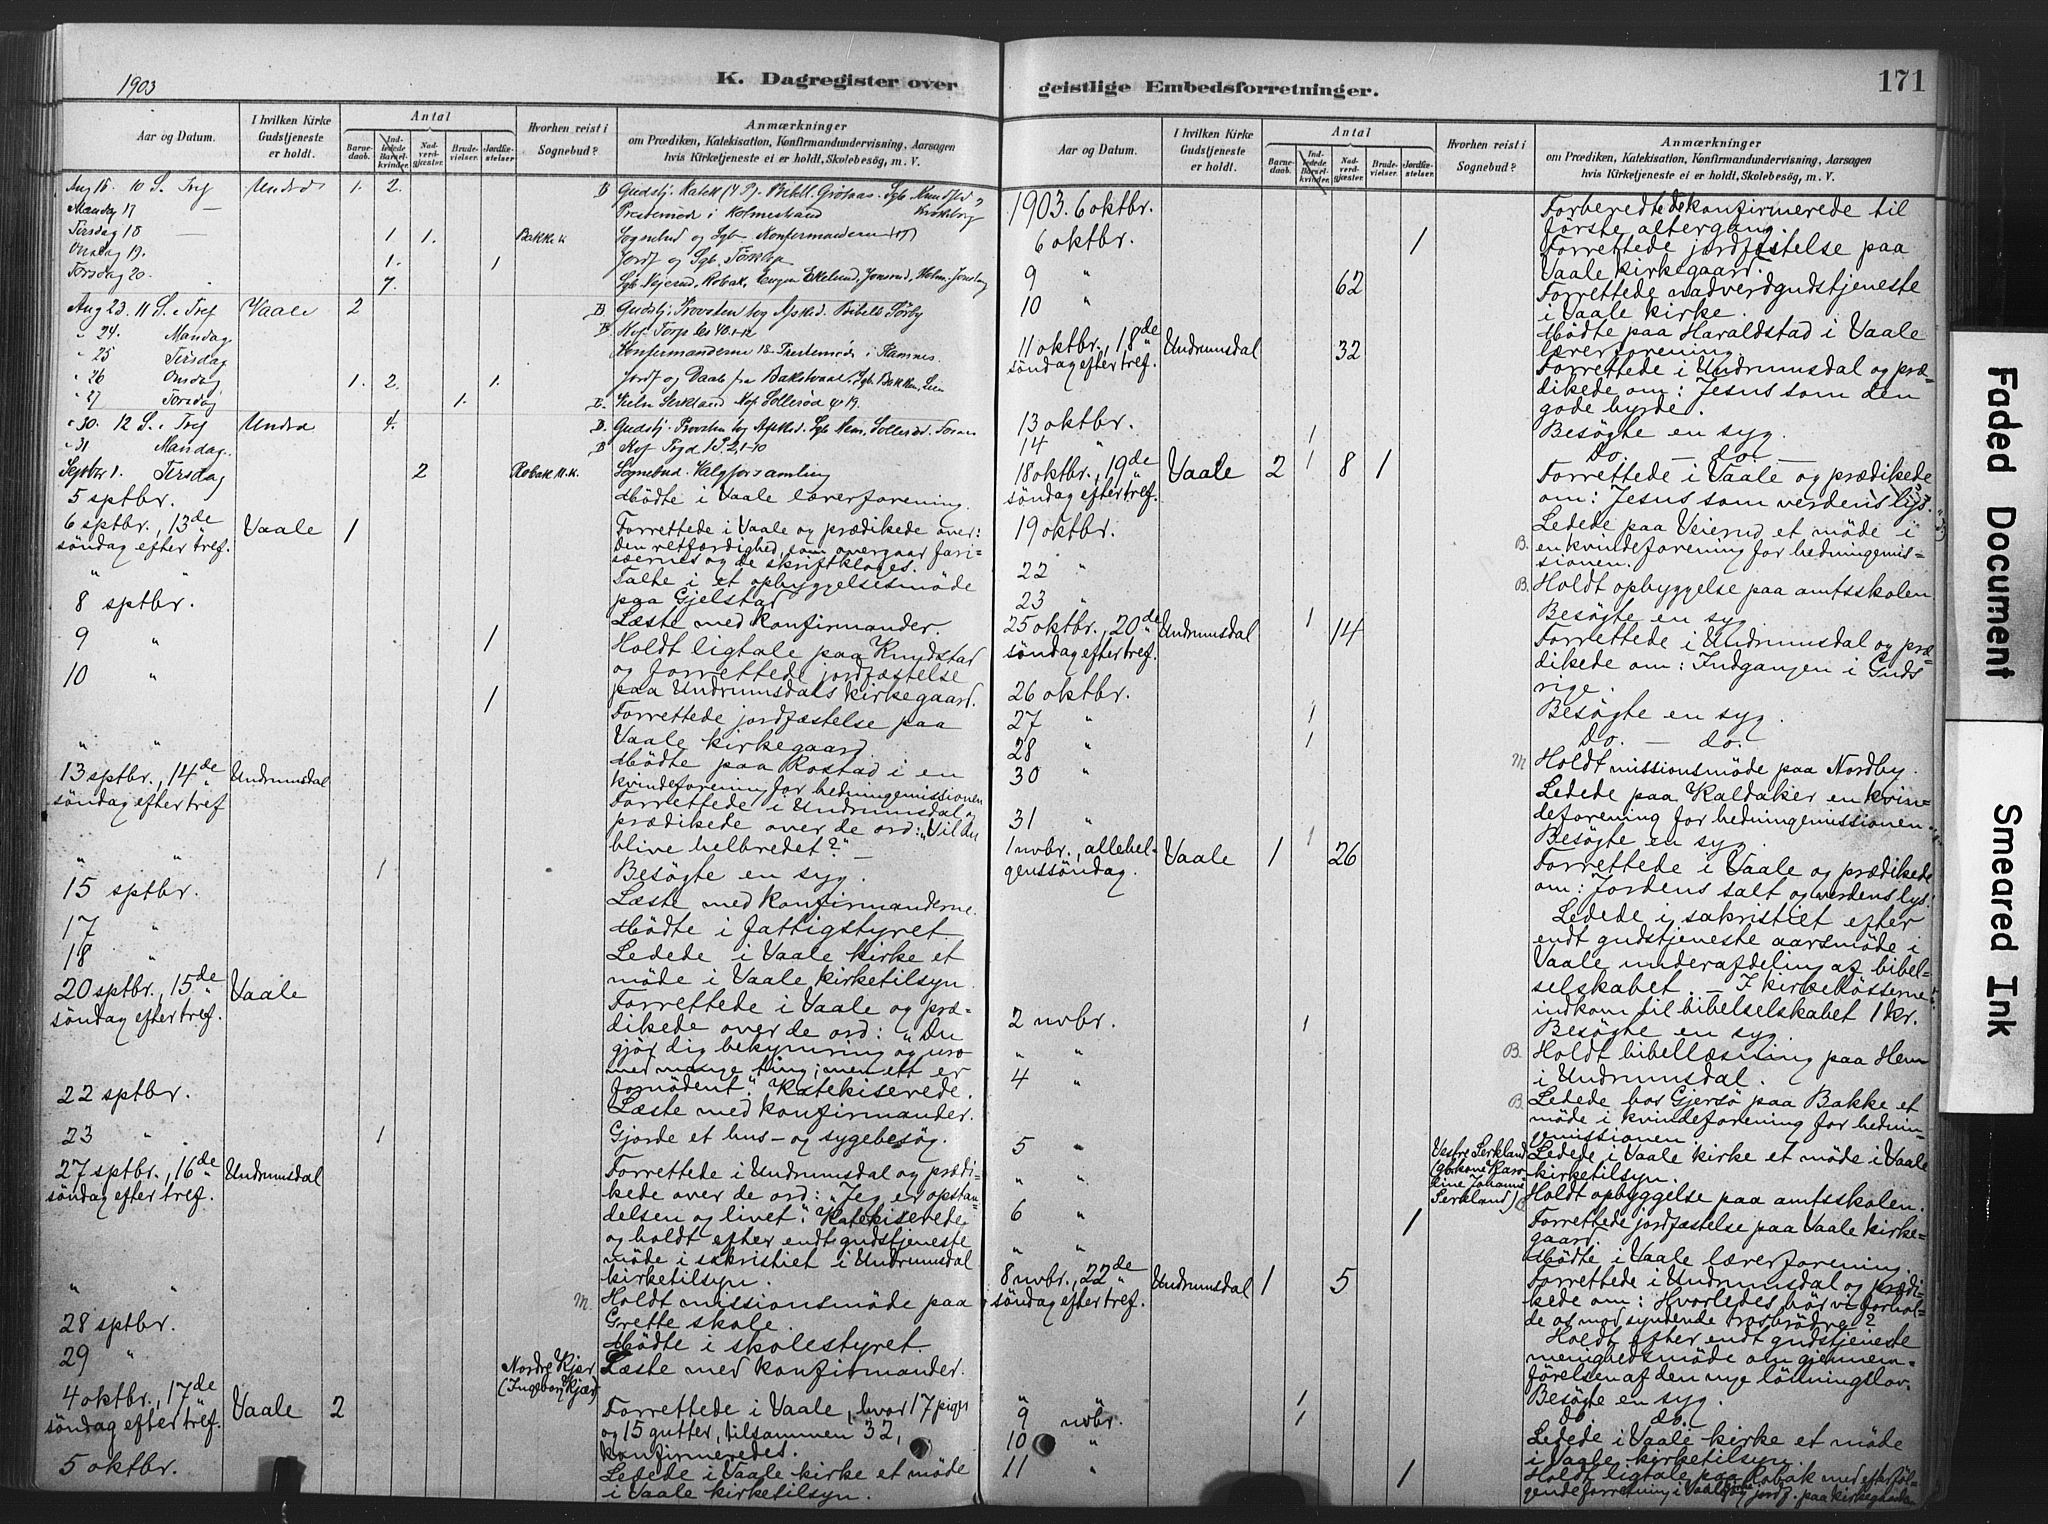 1903
K. Dagregister over
Aar og Datum.
I hvilken Kirke Gudstjeneste er holdt.
Antal
Barnedaab.
Indledede Barselkvinder.
Nadverdgjæster.
Brudevielser.
Jordfæstelser
Hvorhen reist i Sognebud?
Anmærkninger
om Prædiken, Katekisation, Konfirmandundervisning, Aarsagen
hvis Kirketjeneste ei er holdt, Skolebesög, m. V.
Aug 16. 10 S. Tref Undrd 1. 2.
Mandag 17 Prestemöde i Holmestrand
Tirsdag 18 1. 1. Bakke Sognebud og Sgb Konfirmanderne
Onsdag 19. 1. 1 Jordf og Sgb.
Torsdag 20. 7.
Aug 23. 11 S. e Tref Vaale 2 B
" 24. Mandag B
" 25 Tirsdag Konfirmanderne 18. Prestemöde i Ramnes
" 26 Onsdag 1. 2. 1. Jordf og Daab fra
" 27 Torsdag 1. B.
" 30. 12 S. e Tref Undrd 4. B.
" 31 Mandag. B
Septbr 1. Tirsdag 2 Robak Sognebud. Valgforsamling
5 sptbr. Mödte i Vaale lærerforening.
6 sptbr., 13de söndag efter tref. Vaale 1 Forrettede i Vaale og prædikede over:
den retfærdighed, som overgaar fari-
sæernes og de skriftkloges.
" " Talte i et opbyggelsesmöde
paa Gjelstad
8 sptbr. Læste med konfirmander.
9 " 1 Holdt ligtale paa Knudstad
og forrettede jordfæstelse
paa Undrumsdals kirkegaard.
10 " 1 Forrettede jordfæstelse paa
Vaale kirkegaard.
" " Mödte paa Rostad i en
kvindeforening for hedningemissionen
13 sptbr., 14de söndag efter tref Undrumsdal Forrettede i Undrumsdal og
prædikede over de ord: "Vil du
blive helbredet?"
" " 1 Besögte en syg.
15 sptbr. Læste med konfirmanderne.
17 " Mödte i fattigstyret.
18 " Ledede i Vaale kirke et
möde i Vaale kirketilsyn.
20 sptbr., 15de söndag efter tref. Vaale Forrettede i Vaale og præ-
dikede over de ord: "Du
gjör dig bekymring og uro
med mange ting; men ett er
fornödent". Katekiserede.
22 sptbr. Læste med konfirmander.
23 " 1 Gjorde et hus- og sygebesög.
27 sptbr., 16de söndag efter tref. Undrumsdal Forrettede i Undrumsdal og prædi-
kede over de ord: "Jeg er opstan-
delsen og livet". Katekiserede
og holdt efter endt gudstjeneste
möde i sakristiet i Undrumsdal
kirketilsyn.
" " M Holdt missionsmöde paa
Grette skole.
28 sptbr. Mödte i skolestyret
29 " Læste med konfirmander.
Nordre Kjær (Ingeborg Kjær)
4 oktbr., 17de söndag efter tref. Vaale 2 Forrettede i Vaale, hvor 17 piger
og 15 gutter, tilsammen 32,
konfirmeredes.
5 oktbr. Ledede i Vaale kirke et möde
i Vaale kirketilsyn.
geistlige Embedsforretninger.
171
Aar og Datum.
I hvilken Kirke Gudstjeneste er holdt.
Antal
Barnedaab.
Indledede Barselkvinder.
Nadverdgjæster.
Brudevielser.
Jordfæstelser.
Hvorhen reist i Sognebud?
Anmærkninger
om Prædiken, Katekisation, Konfirmandundervisning, Aarsagen
hvis Kirketjeneste ei er holdt, Skolebesög, m. V.
1903. 6 oktbr. Forberedte de konfirmerede til
förste altergang.
6 oktbr. 1 Forrettede jordfæstelse paa
Vaale kirkegaard.
9 " 62 Forrettede nadverdgudstjeneste
i Vaale kirke.
10 " Mödte paa Haraldstad i Vaale
lærerforening.
11 oktbr., 18de söndag efter tref. Undrumsdal 32 Forrettede i Undrumsdal og præ-
dikede om: Jesus som den
gode hyrde.
13 oktbr. 1 Besögte en syg.
14 " 1 Do. — do. —
18 oktbr., 19de söndag efter tref. Vaale 2 8 1 Forrettede i Vaale og prædikede
om: Jesus som verdens lys.
19 oktbr. B. Ledede paa Veierud et möde i
en kvindeforening for hedningemis-
sionen.
22 " B. Holdt opbyggelse paa amtsskolen
23 " 1 Besögte en syg.
25 oktbr., 20de söndag efter tref. Undrumsdal 14 Forrettede i Undrumsdal og præ-
dikede om: Indgangen i Guds
rige.
26 oktbr. 1 Besögte en syg.
27 " 1 do. — do.
28 " M Holdt missionsmöde paa Nordby.
30 " Ledede paa Kaldaker en kvin-
deforening for hedningemissionen
31 " 1 Besögte en syg.
1 nvbr., allehelgenssöndag. Vaale 1 26 Forrettede i Vaale og prædikede
om: Jordens salt og verdens lys.
Ledede i sakristiet efter
endt gudstjeneste aarsmöde i
Vaale underafdeling af bibel-
selskabet. — I kirkebösserne
indkom til bibelselskabet 1 kr.
2 nvbr. 1 Besögte en syg.
" " B. Holdt bibellæsning paa Hem
i Undrumsdal.
4 " B. Ledede hos Gjersö paa Bakke et
möde i kvindeforening for hednin-
gemissionen.
5 " Vestre Serkland (gbrkone Karoline Johanne Serkland) Ledede i Vaale kirke et möde i Vaale
kirketilsyn.
" " B Holdt opbyggelse paa amtsskolen.
6 " 1 Forrettede jordfæstelse paa Vaale kirke-
gaard.
" " Mödte i Vaale lærerforening.
8 nvbr., 22de söndag efter tref. Undrumsdal 1 5 Forrettede i Undrumsdal og prædi-
kede om: Hvorledes bör vi forhol-
de os mod syndende trosbrödre?
Holdt efter endt gudstjeneste
menighedsmöde om gjennem-
förelsen af den nye lönningslov.
" " 1 Besögte en syg.
9 nvbr. 1 do. do.
10 " Ledede i Vaale kirke et möde
i Vaale kirketilsyn.
11 " 1 Holdt ligtale paa Robak med efterföl-
gende forretning i Vaale kirke og jordf. paa kirkegaarden
Faded Document
Smeared Ink